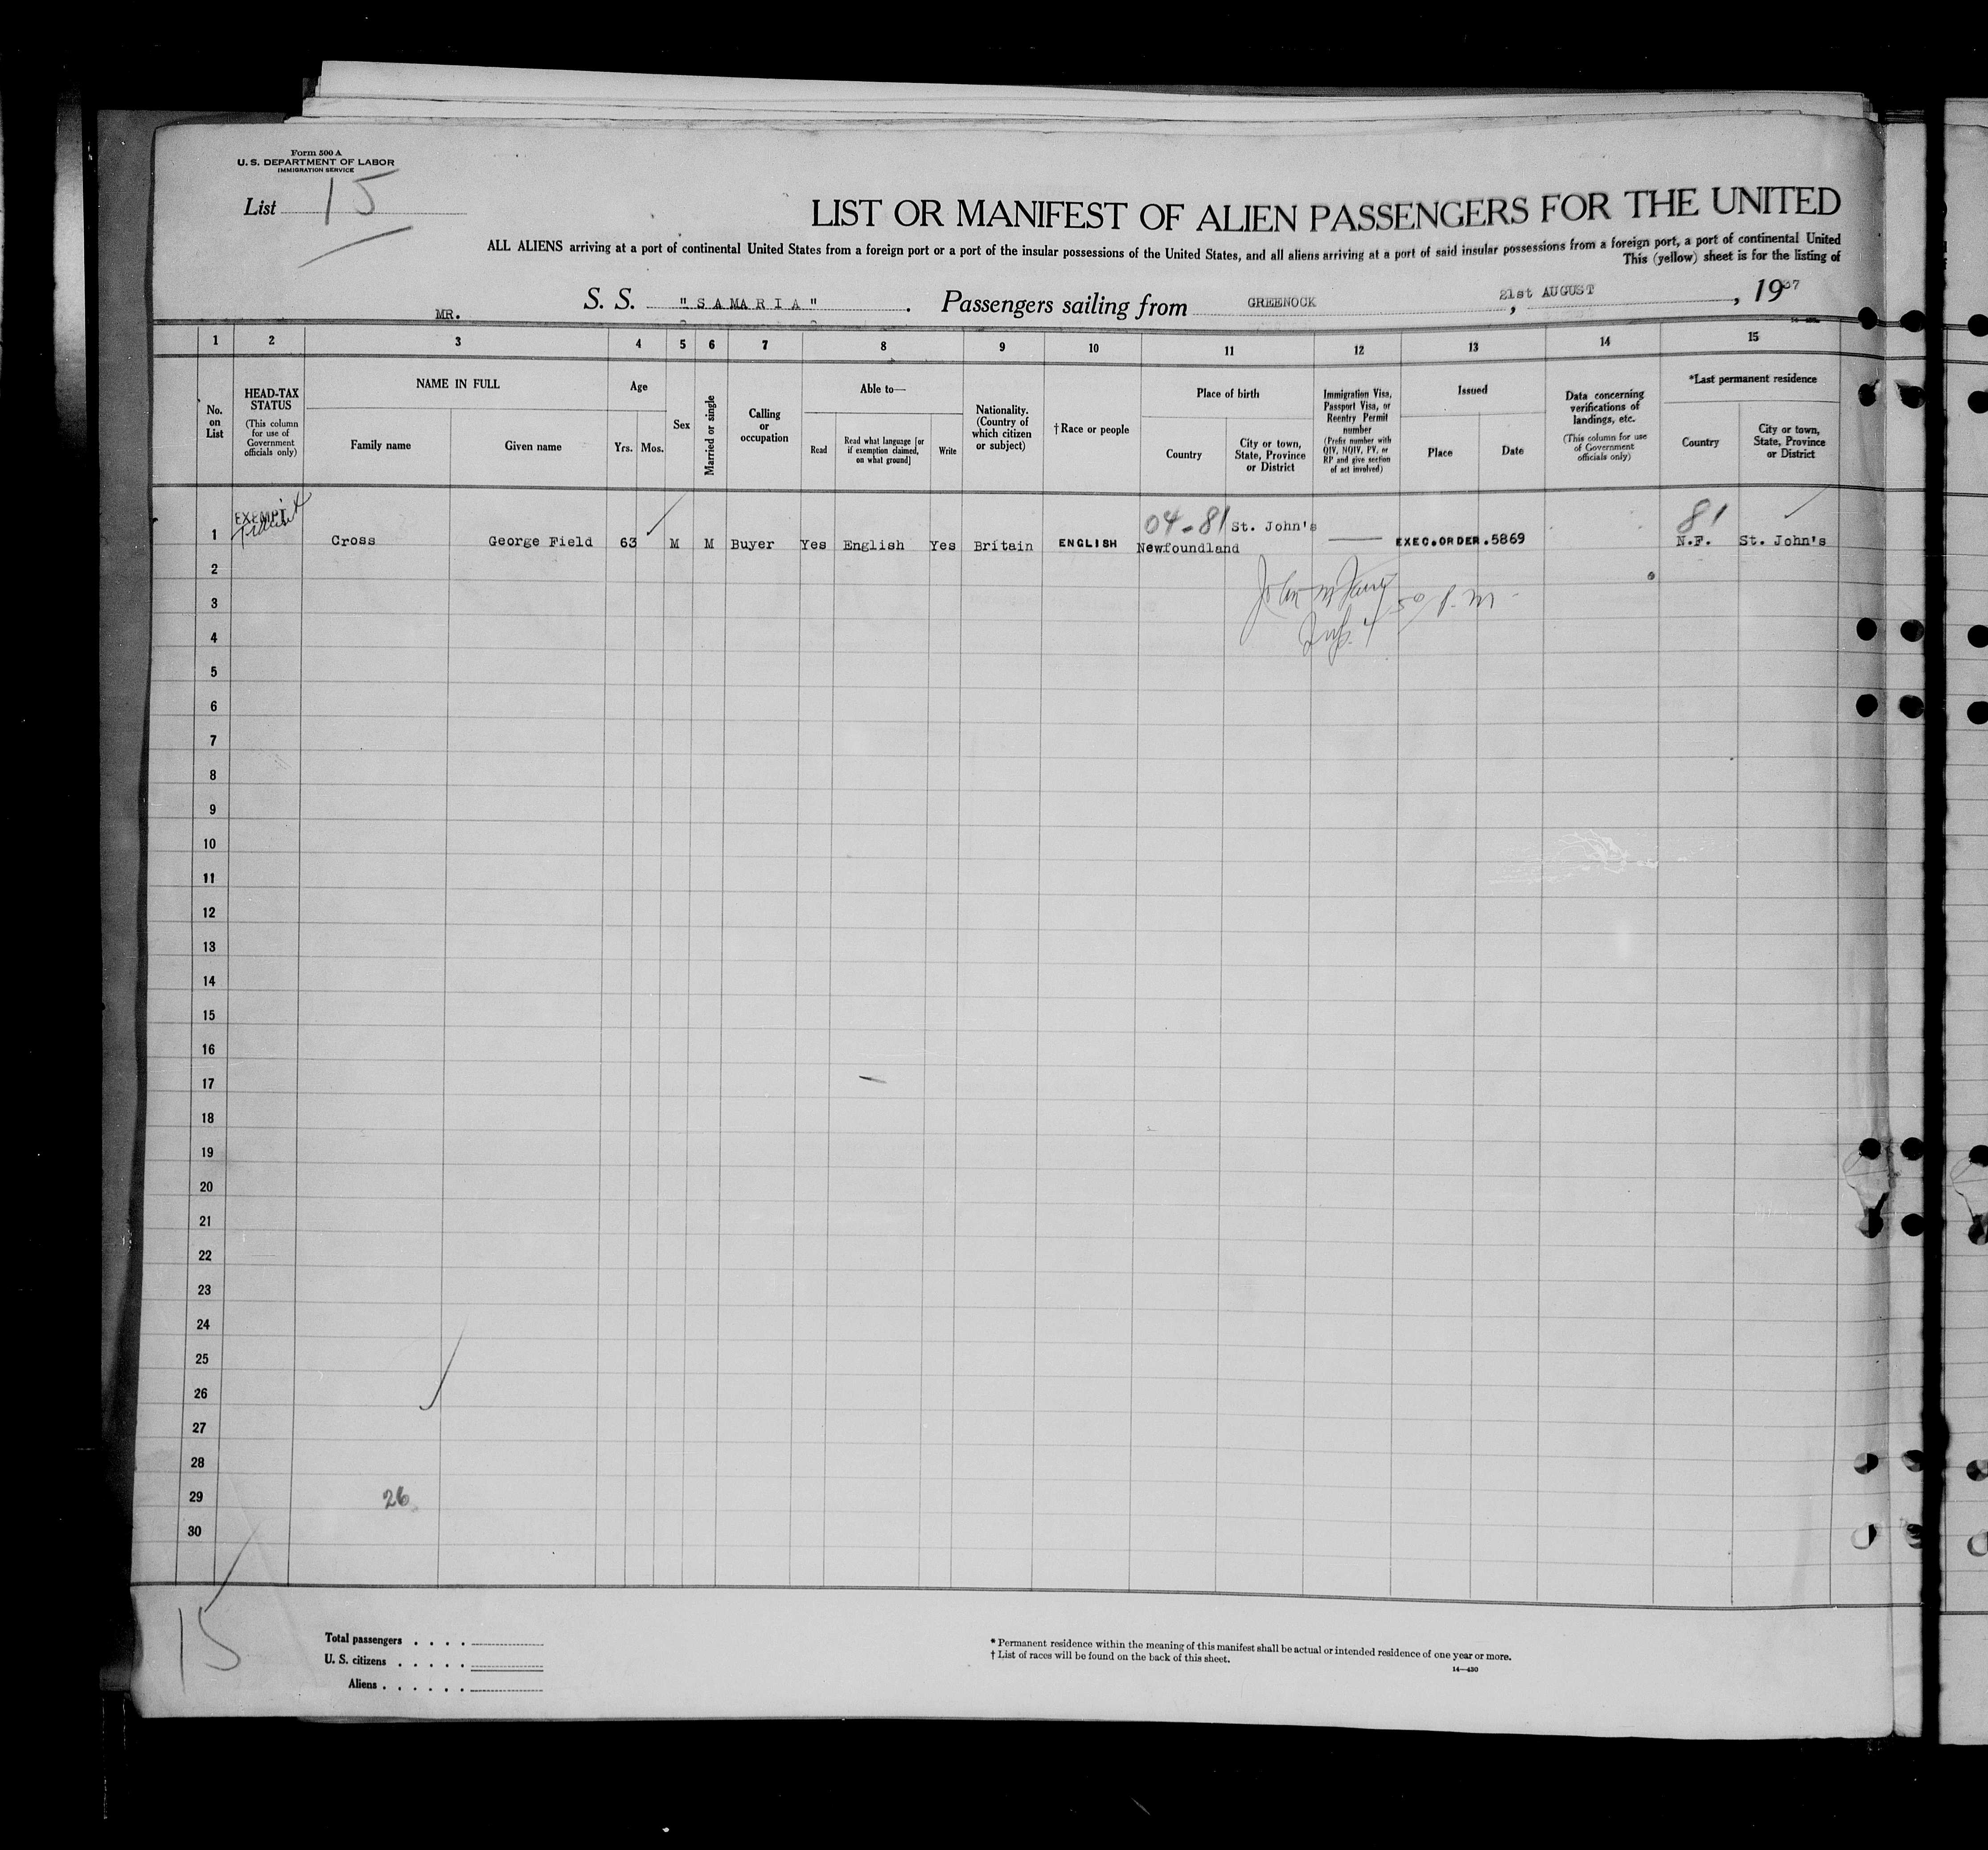 Form 500 A
U. S. DEPARTMENT OF LABOR
IMMIGRATION SERVICE
List 15
LIST OR MANIFEST OF ALIEN PASSENGERS FOR THE UNITED
ALL ALIENS arriving at a port of continental United States from a foreign port or a port of the insular possessions of the United States, and all aliens arriving at a port of said insular possessions from a foreign port, a port of continental United
This (yellow) sheet is for the listing of
S. S. "SAMARIA". Passengers sailing from GREENOCK, 21st AUGUST, 1937
MR.
1 2 3 4 5 6 7 8 9 10 11 12 13 14 15
No. on List
HEAD-TAX STATUS
(This column for use of Government officials only)
NAME IN FULL
Family name
Given name
Age
Yrs. Mos.
Sex
Married or single
Calling or occupation
Able to—
Read
Read what language [or if exemption claimed, on what ground]
Write
Nationality. (Country of which citizen or subject)
†Race or people
Place of birth
Country
City or town, State, Province or District
Immigration Visa, Passport Visa, or Reentry Permit number
(Prefix number with QIV, NQIV, PV, or RP and give section of act involved)
Issued
Place
Date
Data concerning verifications of landings, etc.
(This column for use of Government officials only)
*Last permanent residence
Country
City or town, State, Province or District
EXEMPT
Transit
04-81 St. John's
81
1 Cross George Field 63 M M Buyer Yes English Yes Britain ENGLISH Newfoundland EXEC.ORDER.5869 N.F. St. John's
2
3
4
5
6
7
8
9
10
11
12
13
14
15
16
17
18
19
20
21
22
23
24
25
26
27
28
29
26
30
15
Total passengers . . . .
U. S. citizens . . . . .
Aliens . . . . . .
* Permanent residence within the meaning of this manifest shall be actual or intended residence of one year or more.
† List of races will be found on the back of this sheet.
14—430